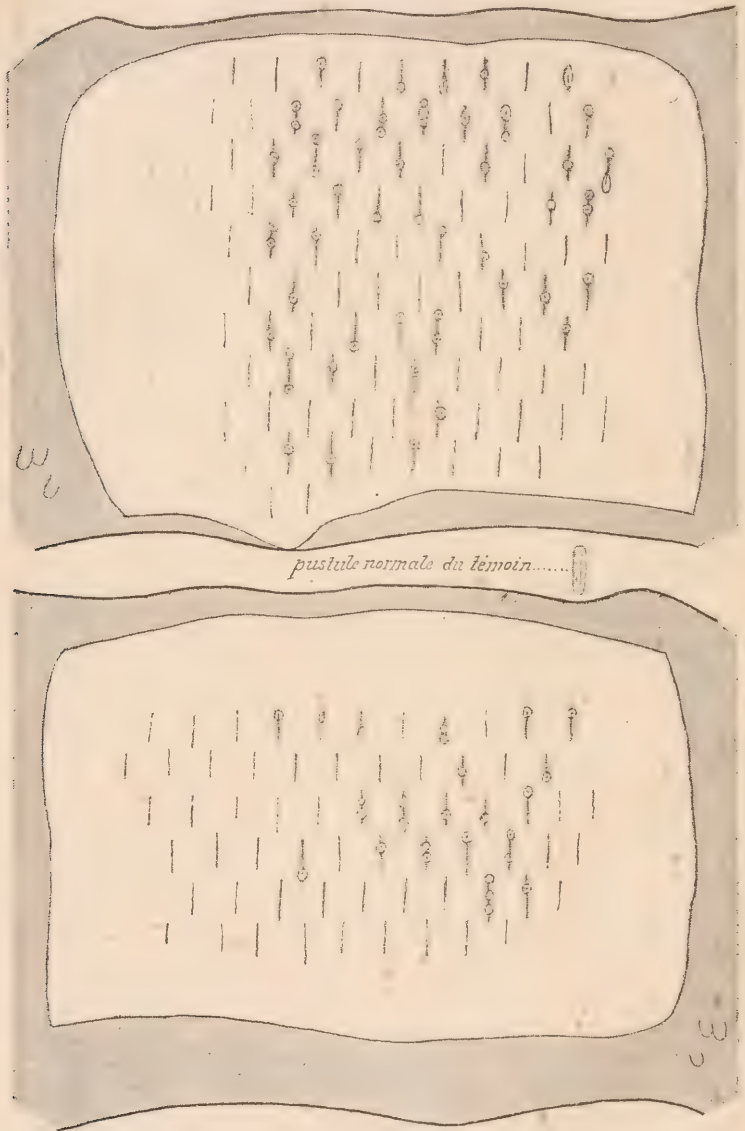 pustule normale du témoin.......